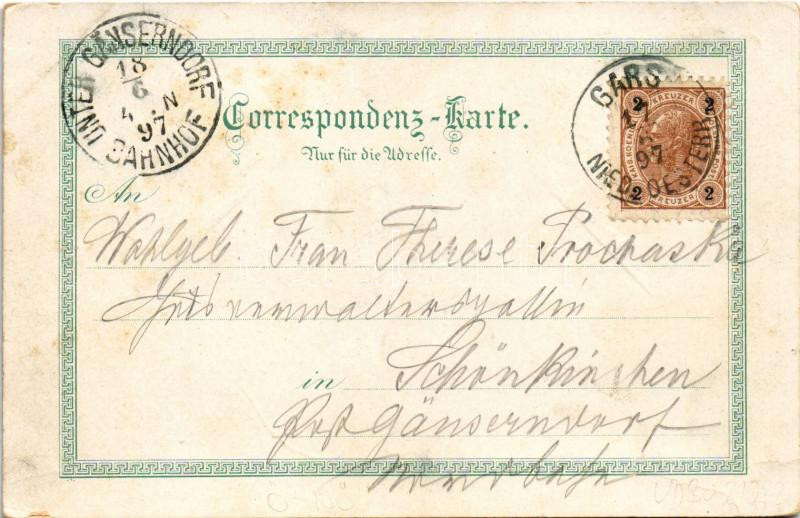 UNTER GÄNSERNDORF
18
6
4 N
97
BAHNHOF
GARS
17
97
NIED. OESTERR.
2 KREUZER 2
2 KREUZER 2
Correspondenz-Karte.
Nur für die Adresse.
An
Wohlgeb. Frau Therese Prochaska
Gutsverwaltersgattin
in Schönkirchen
Post Gänserndorf
Nordbahn